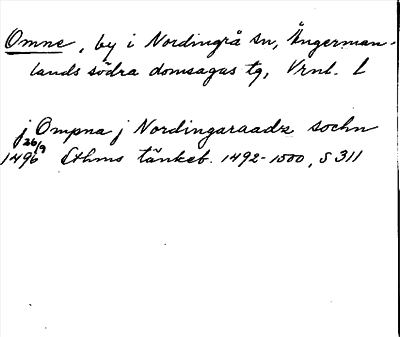 Omne, by i Nordingrå sn, Ångerman-
lands södra domsagas tg, Vrnl. L
j Ompna j Nordingaraadz sochn
26/9
1496 Sthms tänkeb. 1492-1500, s 311